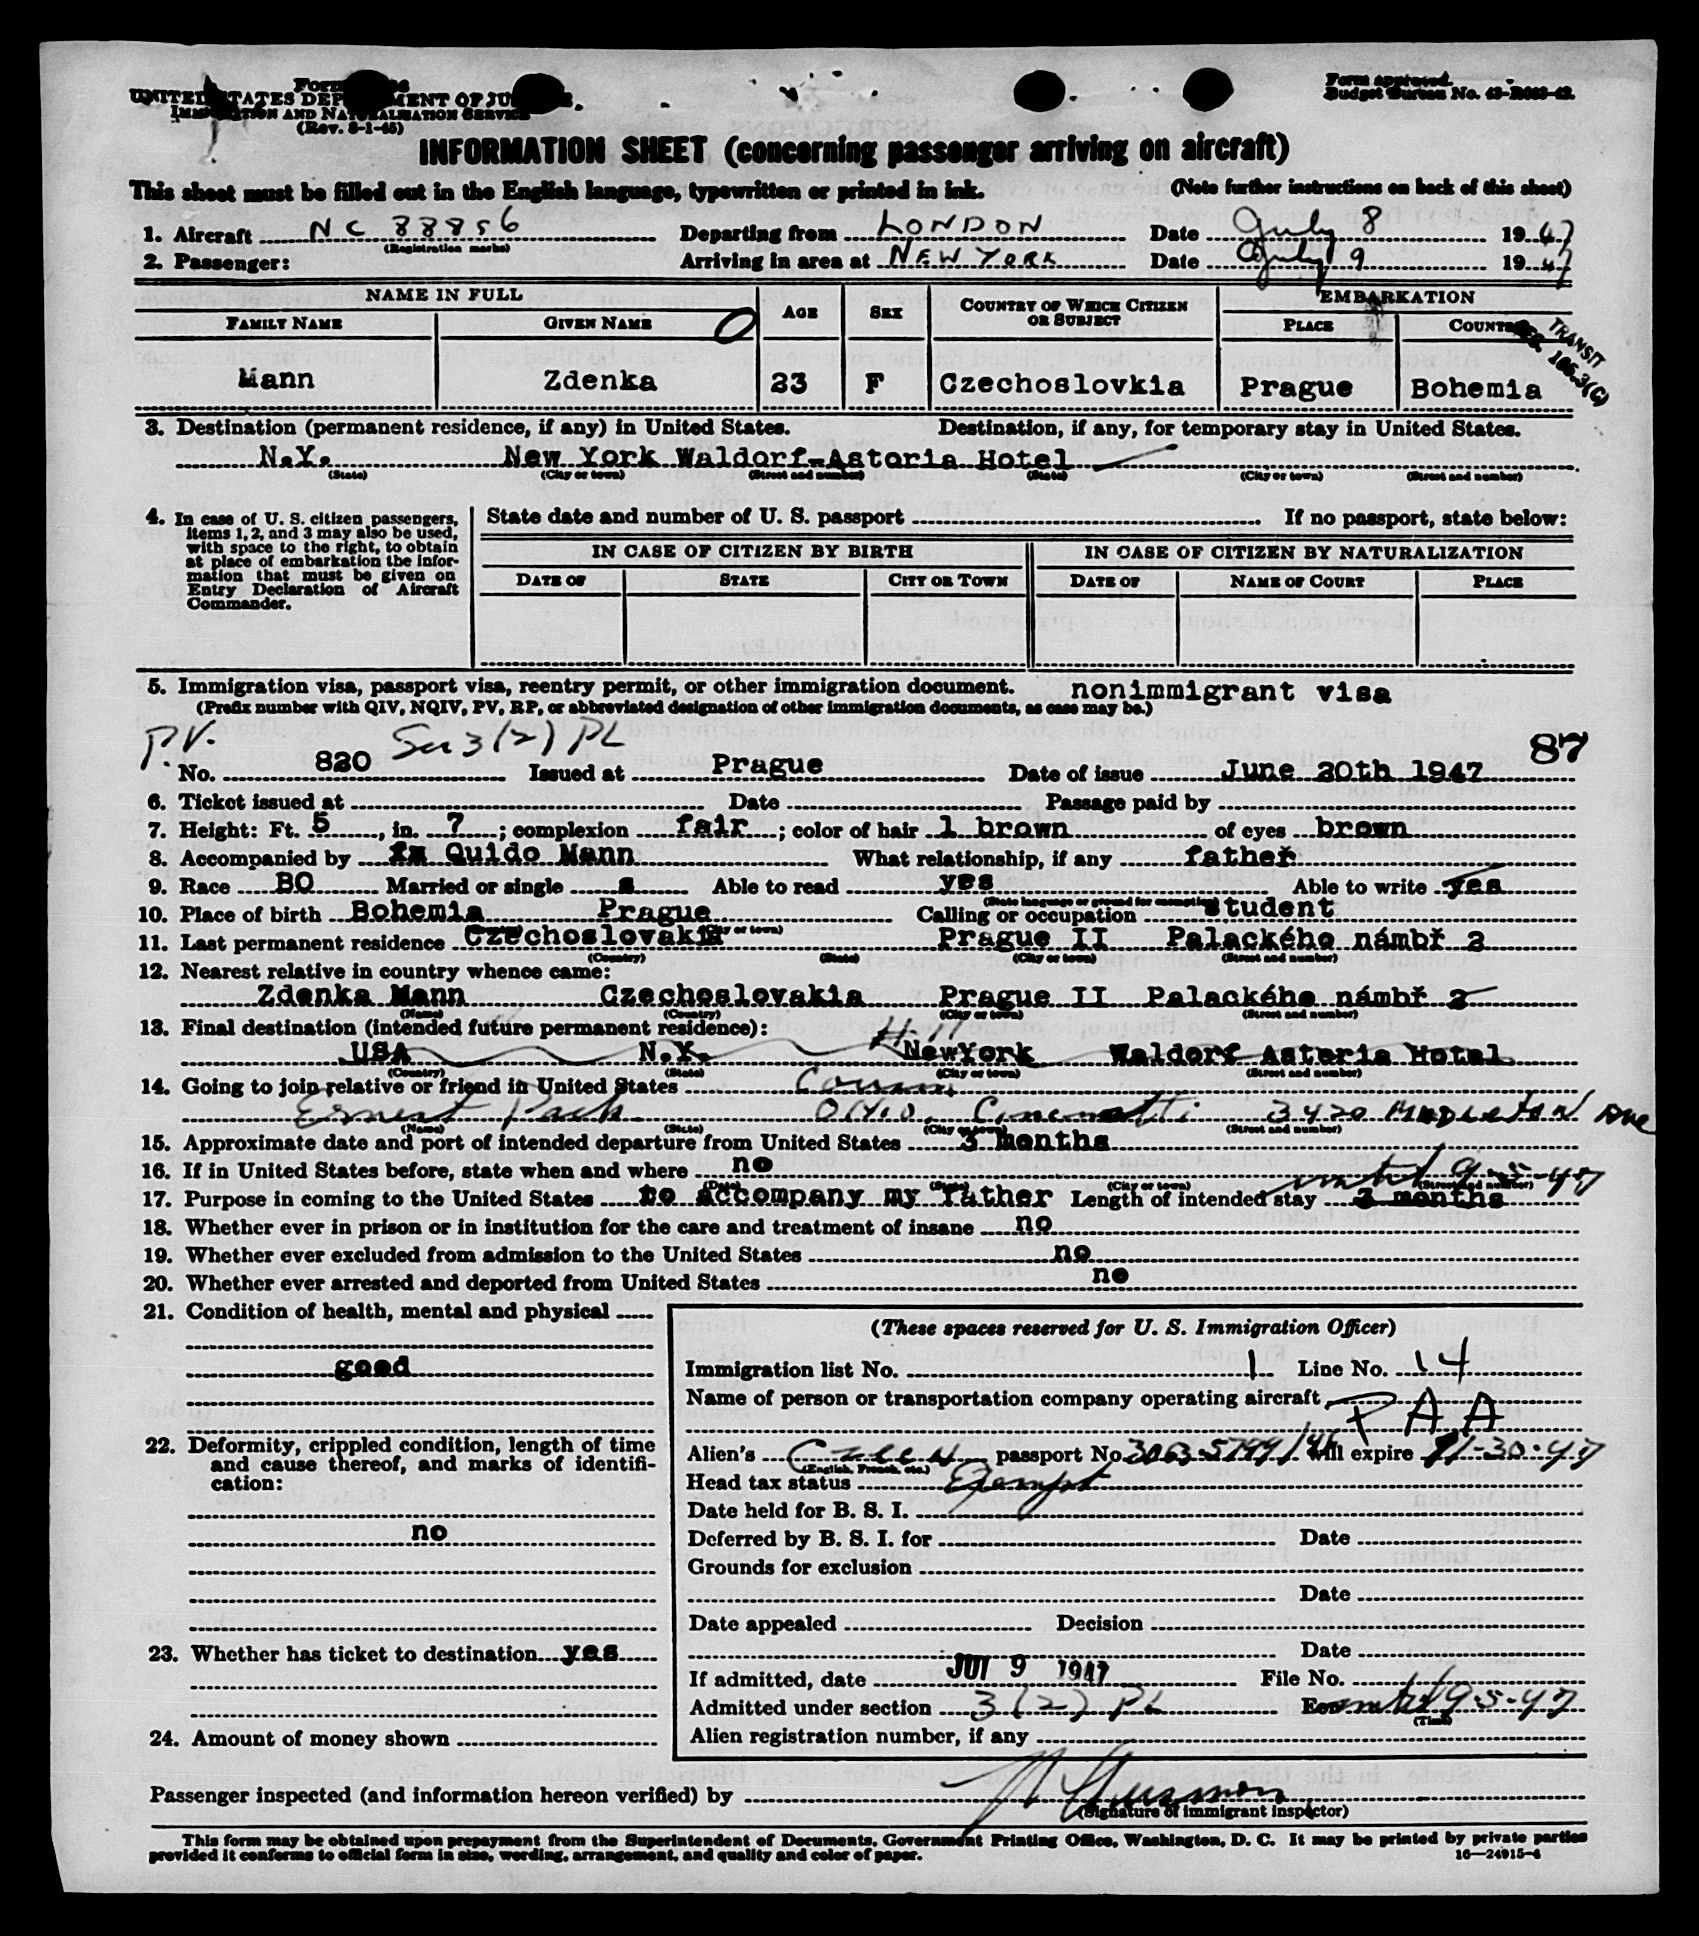 UNITED STATES DEPARTMENT OF JUSTICE
IMMIGRATION AND NATURALIZATION SERVICE
(Rev. 8-1-45)
Form approved.
Budget Bureau No. 43-R083-42.
INFORMATION SHEET (concerning passenger arriving on aircraft)
This sheet must be filled out in the English language, typewritten or printed in ink. (Note further instructions on back of this sheet)
1. Aircraft NC 88856 Departing from LONDON Date July 8 1947
(Registration marks)
2. Passenger: Arriving in area at NEW YORK Date July 9 1947
NAME IN FULL AGE SEX COUNTRY OF WHICH CITIZEN OR SUBJECT EMBARKATION
FAMILY NAME GIVEN NAME PLACE COUNTRY
TRANSIT
Mann Zdenka 23 F Czechoslovkia Prague Bohemia
3. Destination (permanent residence, if any) in United States. Destination, if any, for temporary stay in United States.
N.Y. New York Waldorf-Astoria Hotel
(State) (City or town) (Street and number) (State) (City or town) (Street and number)
4. In case of U. S. citizen passengers, items 1, 2, and 3 may also be used, with space to the right, to obtain at place of embarkation the information that must be given on Entry Declaration of Aircraft Commander.
State date and number of U. S. passport If no passport, state below:
IN CASE OF CITIZEN BY BIRTH IN CASE OF CITIZEN BY NATURALIZATION
DATE OF STATE CITY OR TOWN DATE OF NAME OF COURT PLACE
5. Immigration visa, passport visa, reentry permit, or other immigration document. nonimmigrant visa
(Prefix number with QIV, NQIV, PV, RP, or abbreviated designation of other immigration documents, as case may be.)
P.V. 3(2) PL 87
No. 820 Issued at Prague Date of issue June 20th 1947
6. Ticket issued at Date Passage paid by
7. Height: Ft. 5, in. 7; complexion fair; color of hair l brown of eyes brown
8. Accompanied by Quido Mann What relationship, if any father
9. Race BO Married or single s Able to read yes Able to write yes
(State language or ground for exemption)
10. Place of birth Bohemia Prague Calling or occupation student
(City or town)
11. Last permanent residence Czechoslovakia Prague II Palackého námbř 2
(Country) (State) (City or town) (Street and number)
12. Nearest relative in country whence came:
Zdenka Mann Czechoslovakia Prague II Palackého námbř 2
(Name) (Country) (City or town) (Street and number)
13. Final destination (intended future permanent residence):
USA N.Y. NewYork Waldorf Astoria Hotel
(Country) (State) (City or town) (Street and number)
14. Going to join relative or friend in United States Cousin
Ernest OHIO. Cincinnatti 3420 Ave
(Name) (State) (City or town) (Street and number)
15. Approximate date and port of intended departure from United States 3 months
16. If in United States before, state when and where no
(Date) (State) (City or town) (Street and number)
until 9-5-47
17. Purpose in coming to the United States to accompany my father Length of intended stay 3 months
18. Whether ever in prison or in institution for the care and treatment of insane no
19. Whether ever excluded from admission to the United States no
20. Whether ever arrested and deported from United States no
21. Condition of health, mental and physical
good
22. Deformity, crippled condition, length of time and cause thereof, and marks of identification:
no
23. Whether has ticket to destination yes
24. Amount of money shown
(These spaces reserved for U. S. Immigration Officer)
Immigration list No. 1 Line No. 14
Name of person or transportation company operating aircraft
PAA
Alien's Czech passport No. 3063-5799/46 will expire 11-30-47
(English, French, etc.)
Head tax status Exempt
Date held for B. S. I.
Deferred by B. S. I. for Date
Grounds for exclusion
Date
Date appealed Decision
Date
If admitted, date JUL 9 1947 File No.
Admitted under section 3(2) PL For until 9-5-47
(Time)
Alien registration number, if any
Passenger inspected (and information hereon verified) by
(Signature of immigrant inspector)
This form may be obtained upon prepayment from the Superintendent of Documents, Government Printing Office, Washington, D. C. It may be printed by private parties
provided it conforms to official form in size, wording, arrangement, and quality and color of paper. 16—24915-4